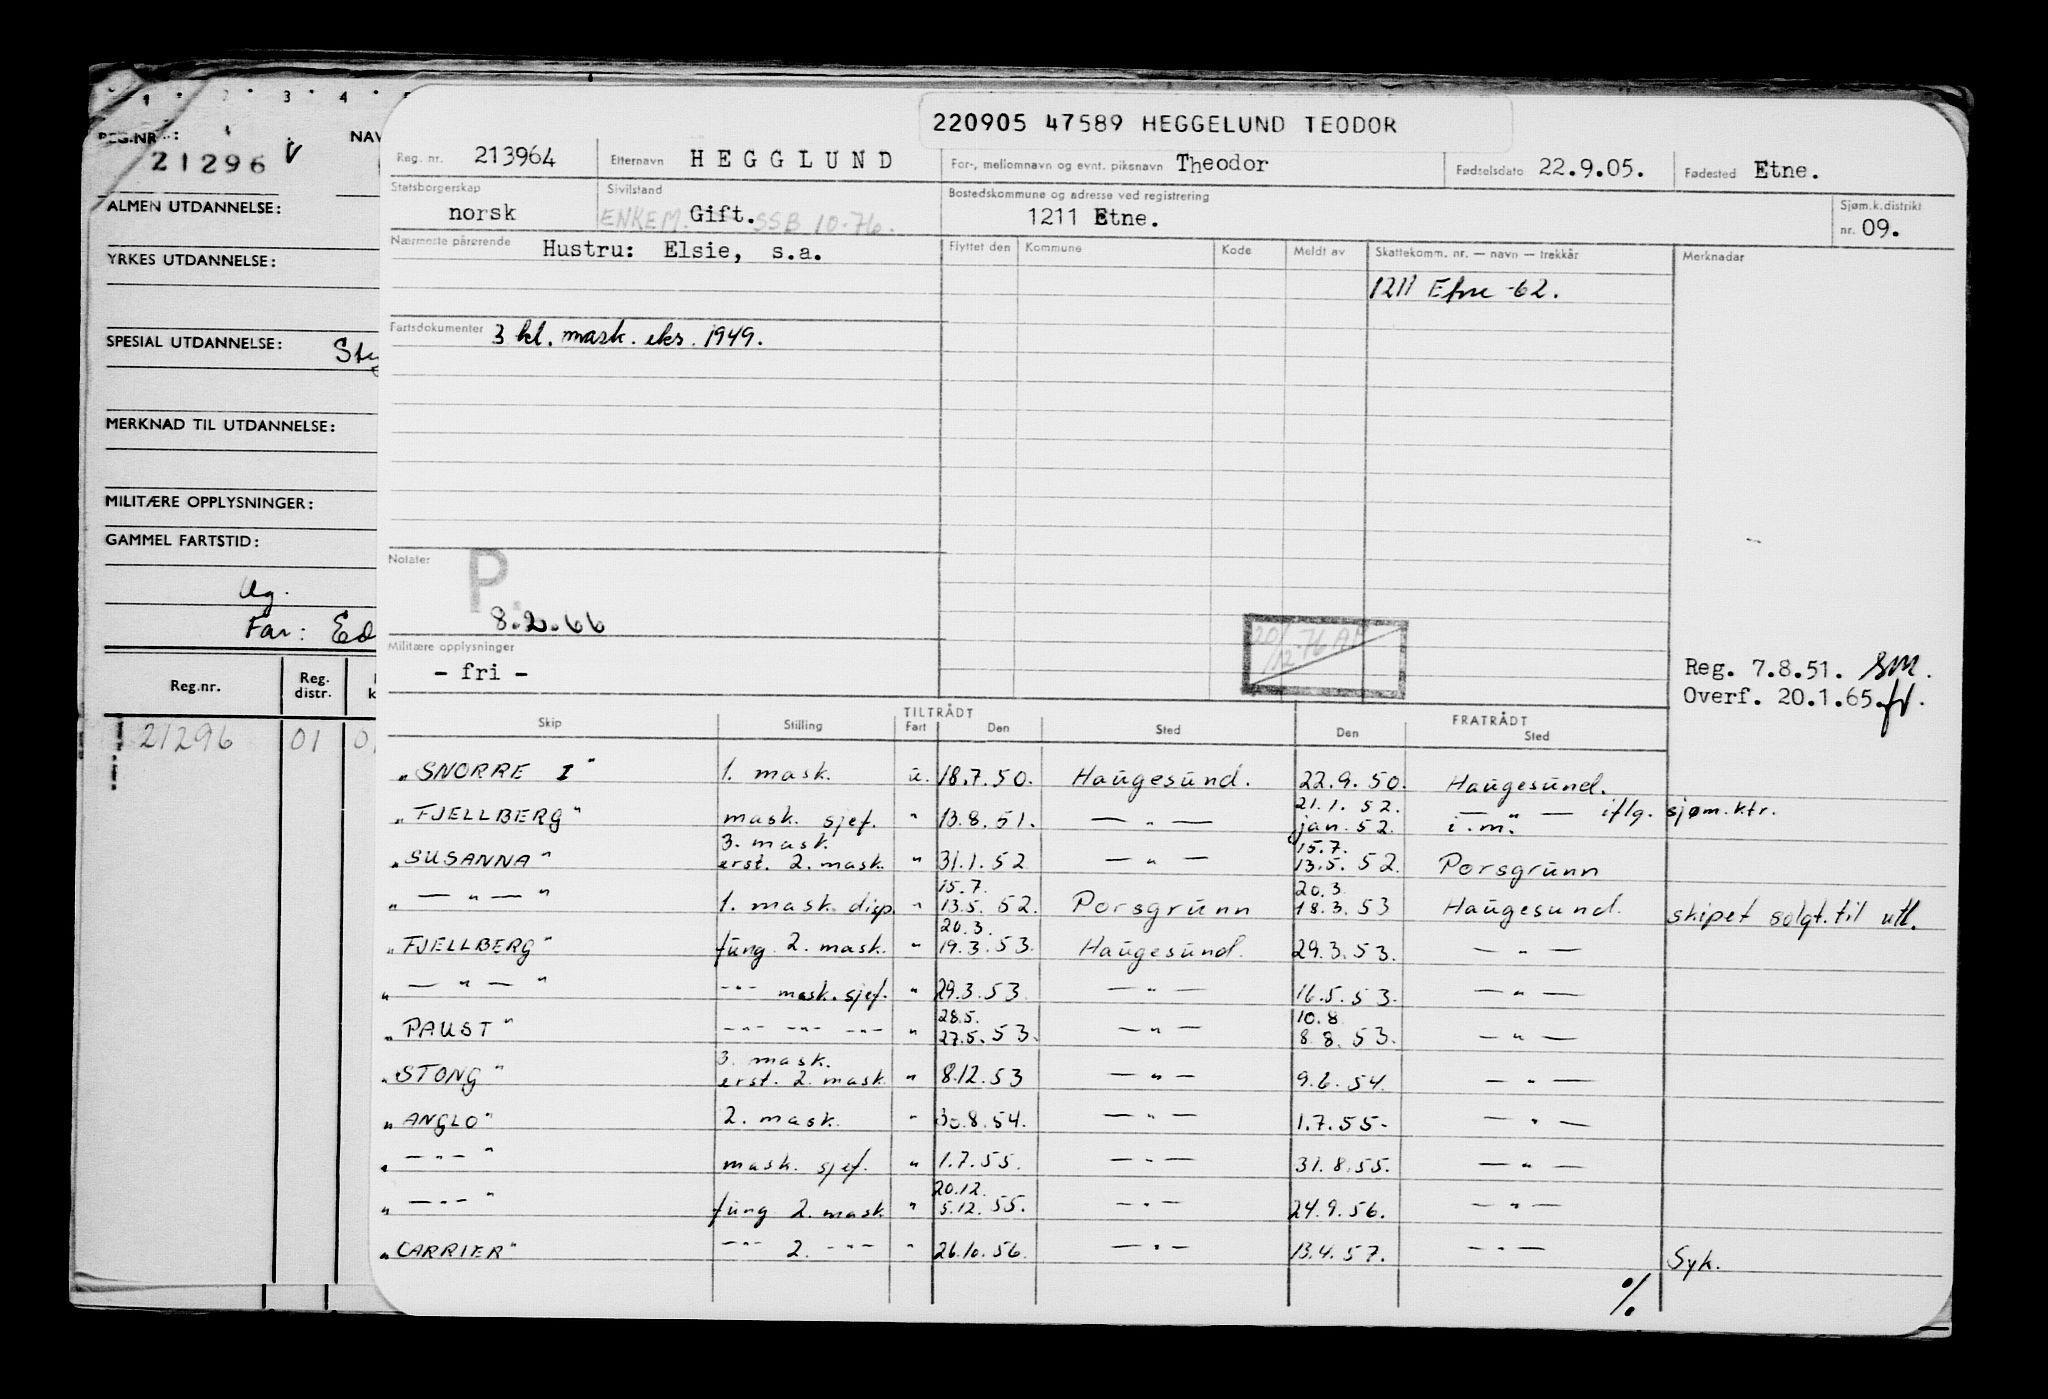 1 2 3 4 5
REG.NR.: NAV
21296 V
ALMEN UTDANNELSE:
YRKES UTDANNELSE:
SPESIAL UTDANNELSE:
MERKNAD TIL UTDANNELSE:
MILITÆRE OPPLYSNINGER:
GAMMEL FARTSTID:
Ug.
Far: Ed
Reg.nr. Reg. distr.
21296 01
220905 47589 HEGGELUND TEODOR
Reg. nr. 213964 Etternavn HEGGLUND For-, mellomnavn og evnt. pikenavn Theodor Fødselsdato 22.9.05. Fødested Etne.
Statsborgerskap Sivilstand Bostedskommune og adresse ved registrering Sjøm.k.distrikt
norsk ENKEM. Gift. SSB 10-76. 1211 Etne. nr. 09.
Nærmeste pårørende Hustru: Elsie, s.a. Flyttet den Kommune Kode Meldt av Skattekomm. nr. — navn — trekkår Merknader
1211 Etne -62.
Fartsdokumenter 3 kl. mask. eks. 1949.
Notater P.
8.2.66
20/12-76 AH
Militære opplysninger
- fri -
Reg. 7.8.51. SM.
Overf. 20.1.65.
TILTRÅDT FRATRÅDT
Skip Stilling Fart Den Sted Den Sted
"SNORRE I" 1. mask. u. 18.7.50. Haugesund. 22.9.50. Haugesund.
21.1.52.
"FJELLBERG" mask. sjef. " 13.8.51. — " — jan. 52. — " — i.m. iflg. sjøm.ktr.
3. mask. 15.7.
"SUSANNA" erst. 2. mask. " 31.1.52 — " — 13.5.52. Porsgrunn
15.7. 20.3.
" — " — " 1. mask. disp. " 13.5.52. Porsgrunn 18.3.53 Haugesund. skipet solgt til utl.
20.3.
"FJELLBERG" fung. 2. mask. " 19.3.53. Haugesund. 29.3.53. — " —
" — " — " -"- mask. sjef. " 29.3.53. — " — 16.5.53. — " —
28.5. 10.8
"PAUST" -"- -"- -"- " 27.5.53. — " — 8.8.53. — " —
3. mask.
"STONG" erst. 2. mask. " 8.12.53 — " — 9.6.54. — " —
"ANGLO" 2. mask. " 30.8.54. — " — 1.7.55. — " —
" — " — " mask. sjef. " 1.7.55. — " — 31.8.55. — " —
20.12.
" — " — " fung. 2. mask. " 5.12.55. — " — 24.9.56. — " —
"CARRIER" -"- 2. -"- " 26.10.56. — " — 13.4.57. — " — Syk.
%